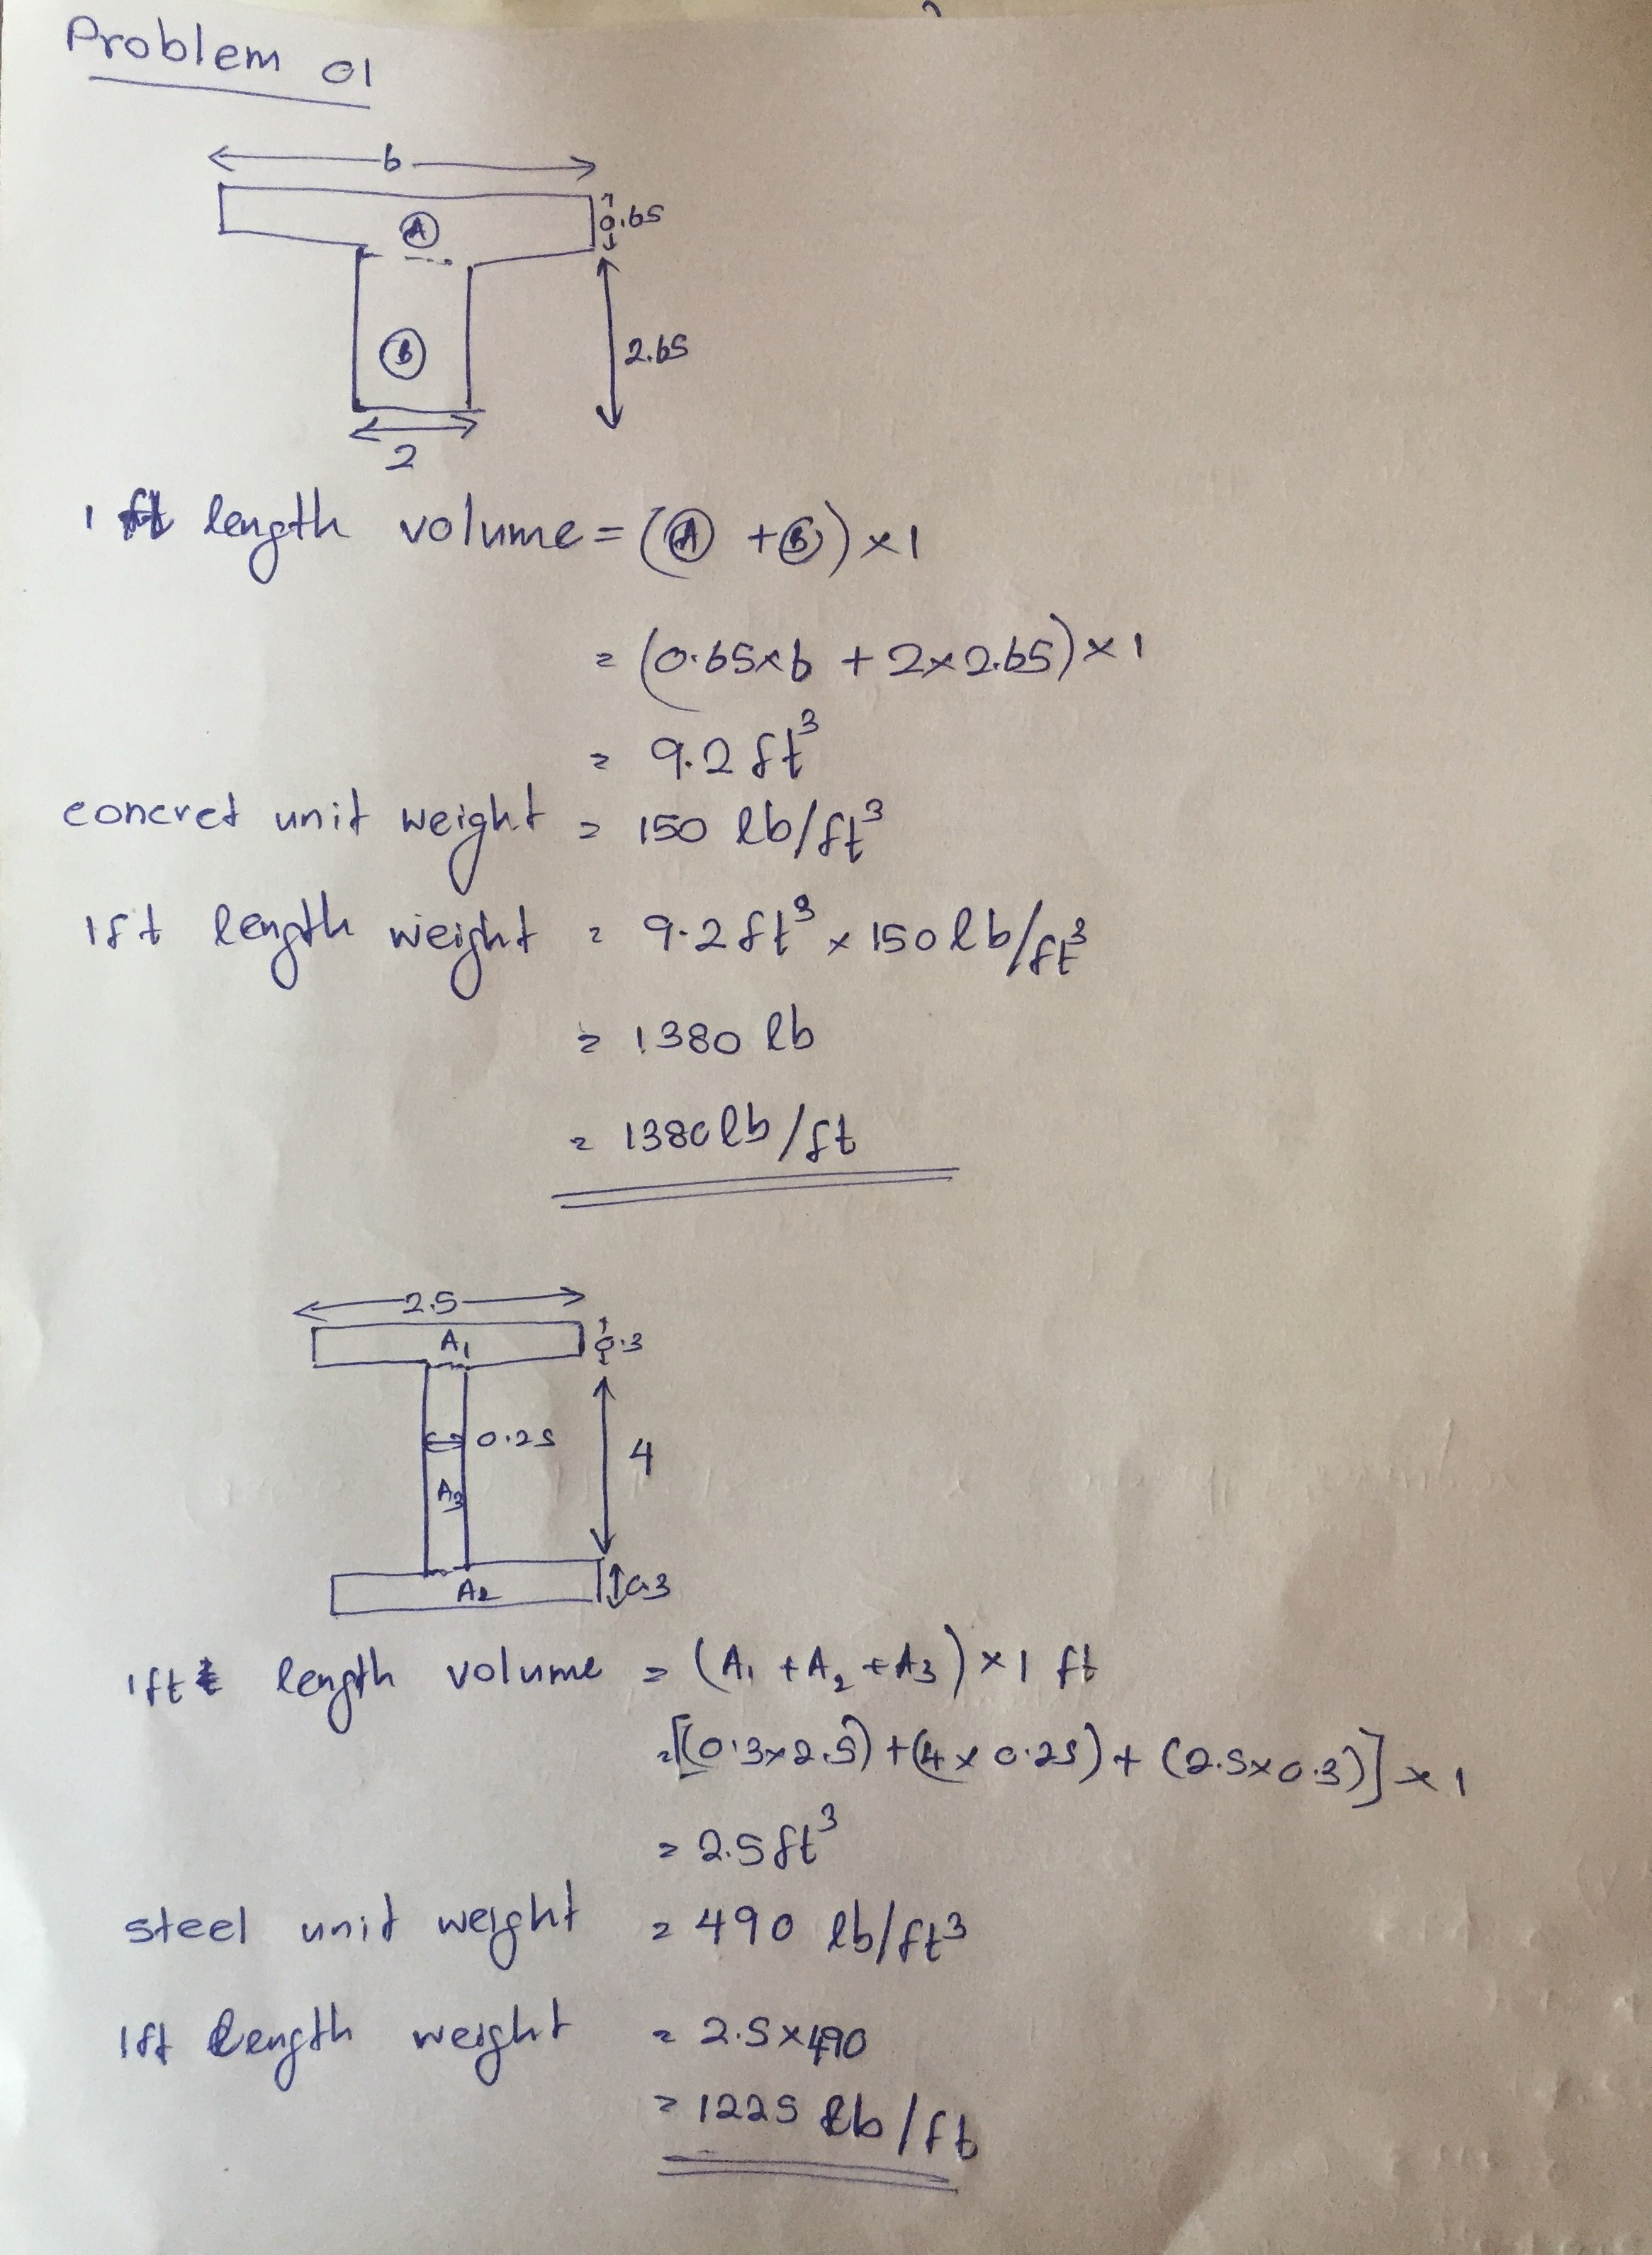 Problem 01
6
A
0.65
B
2.65
2
1 ft length volume = (A + B) × 1
= (0.65×6 + 2×2.65) × 1
= 9.2 ft³
concret unit weight = 150 lb/ft³
1ft length weight = 9.2 ft³ × 150 lb/ft³
= 1380 lb
= 1380 lb/ft
2.5
A₁
0.3
0.25
4
A₃
A₂
0.3
1ft length volume = (A₁ + A₂ + A₃) × 1 ft
= [(0.3×2.5) + (4×0.25) + (2.5×0.3)] × 1
= 2.5 ft³
steel unit weight = 490 lb/ft³
1ft length weight = 2.5×490
= 1225 lb/ft